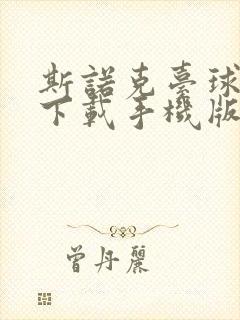 斯諾克臺球
下載手機版
曾丹麗